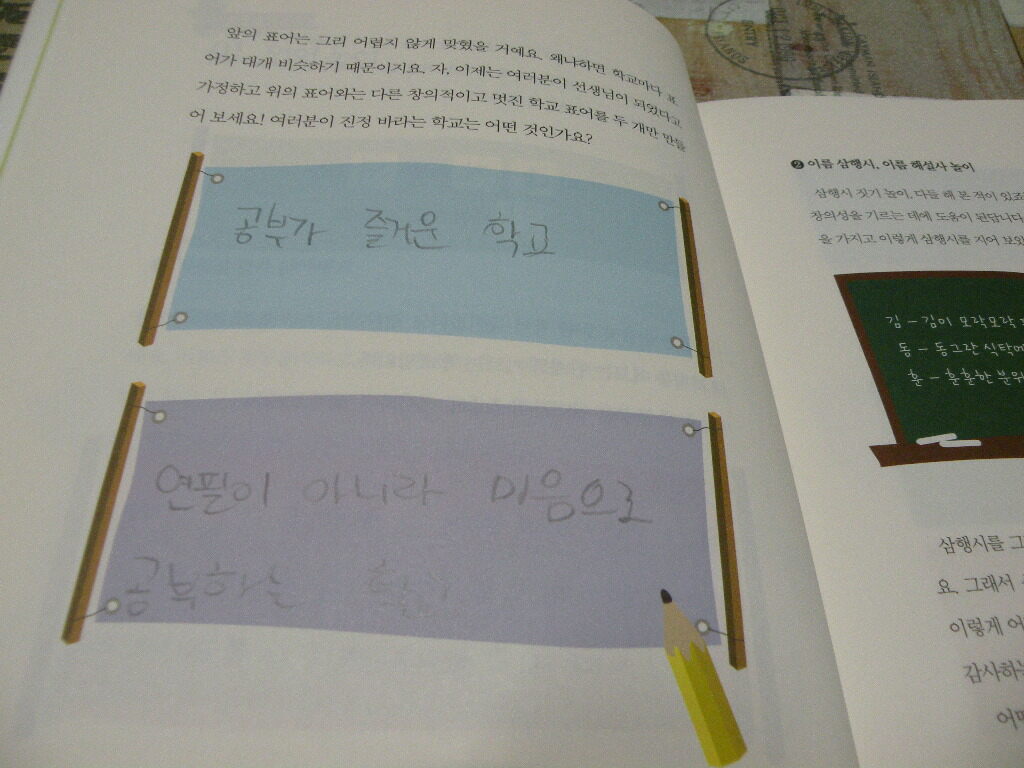 앞의 표어는 그리 어렵지 않게 맞혔을 거예요. 왜냐하면 학교마다 표
어가 대개 비슷하기 때문이지요. 자, 이제는 여러분이 선생님이 되었다고
가정하고 위의 표어와는 다른 창의적이고 멋진 학교 표어를 두 개만 만들
어 보세요! 여러분이 진정 바라는 학교는 어떤 것인가요?
공부가 즐거운 학교
연필이 아니라 마음으로
공부하는 학교
❷ 이름 삼행시, 이름 해설사 놀이
삼행시 짓기 놀이, 다들 해 본 적이 있죠
창의성을 기르는 데에 도움이 된답니다
을 가지고 이렇게 삼행시를 지어 보았
김 – 김이 모락모락
동 – 동그란 식탁에
훈 – 훈훈한 분위
삼행시를 그
요. 그래서
이렇게 어
감사하는
어떤